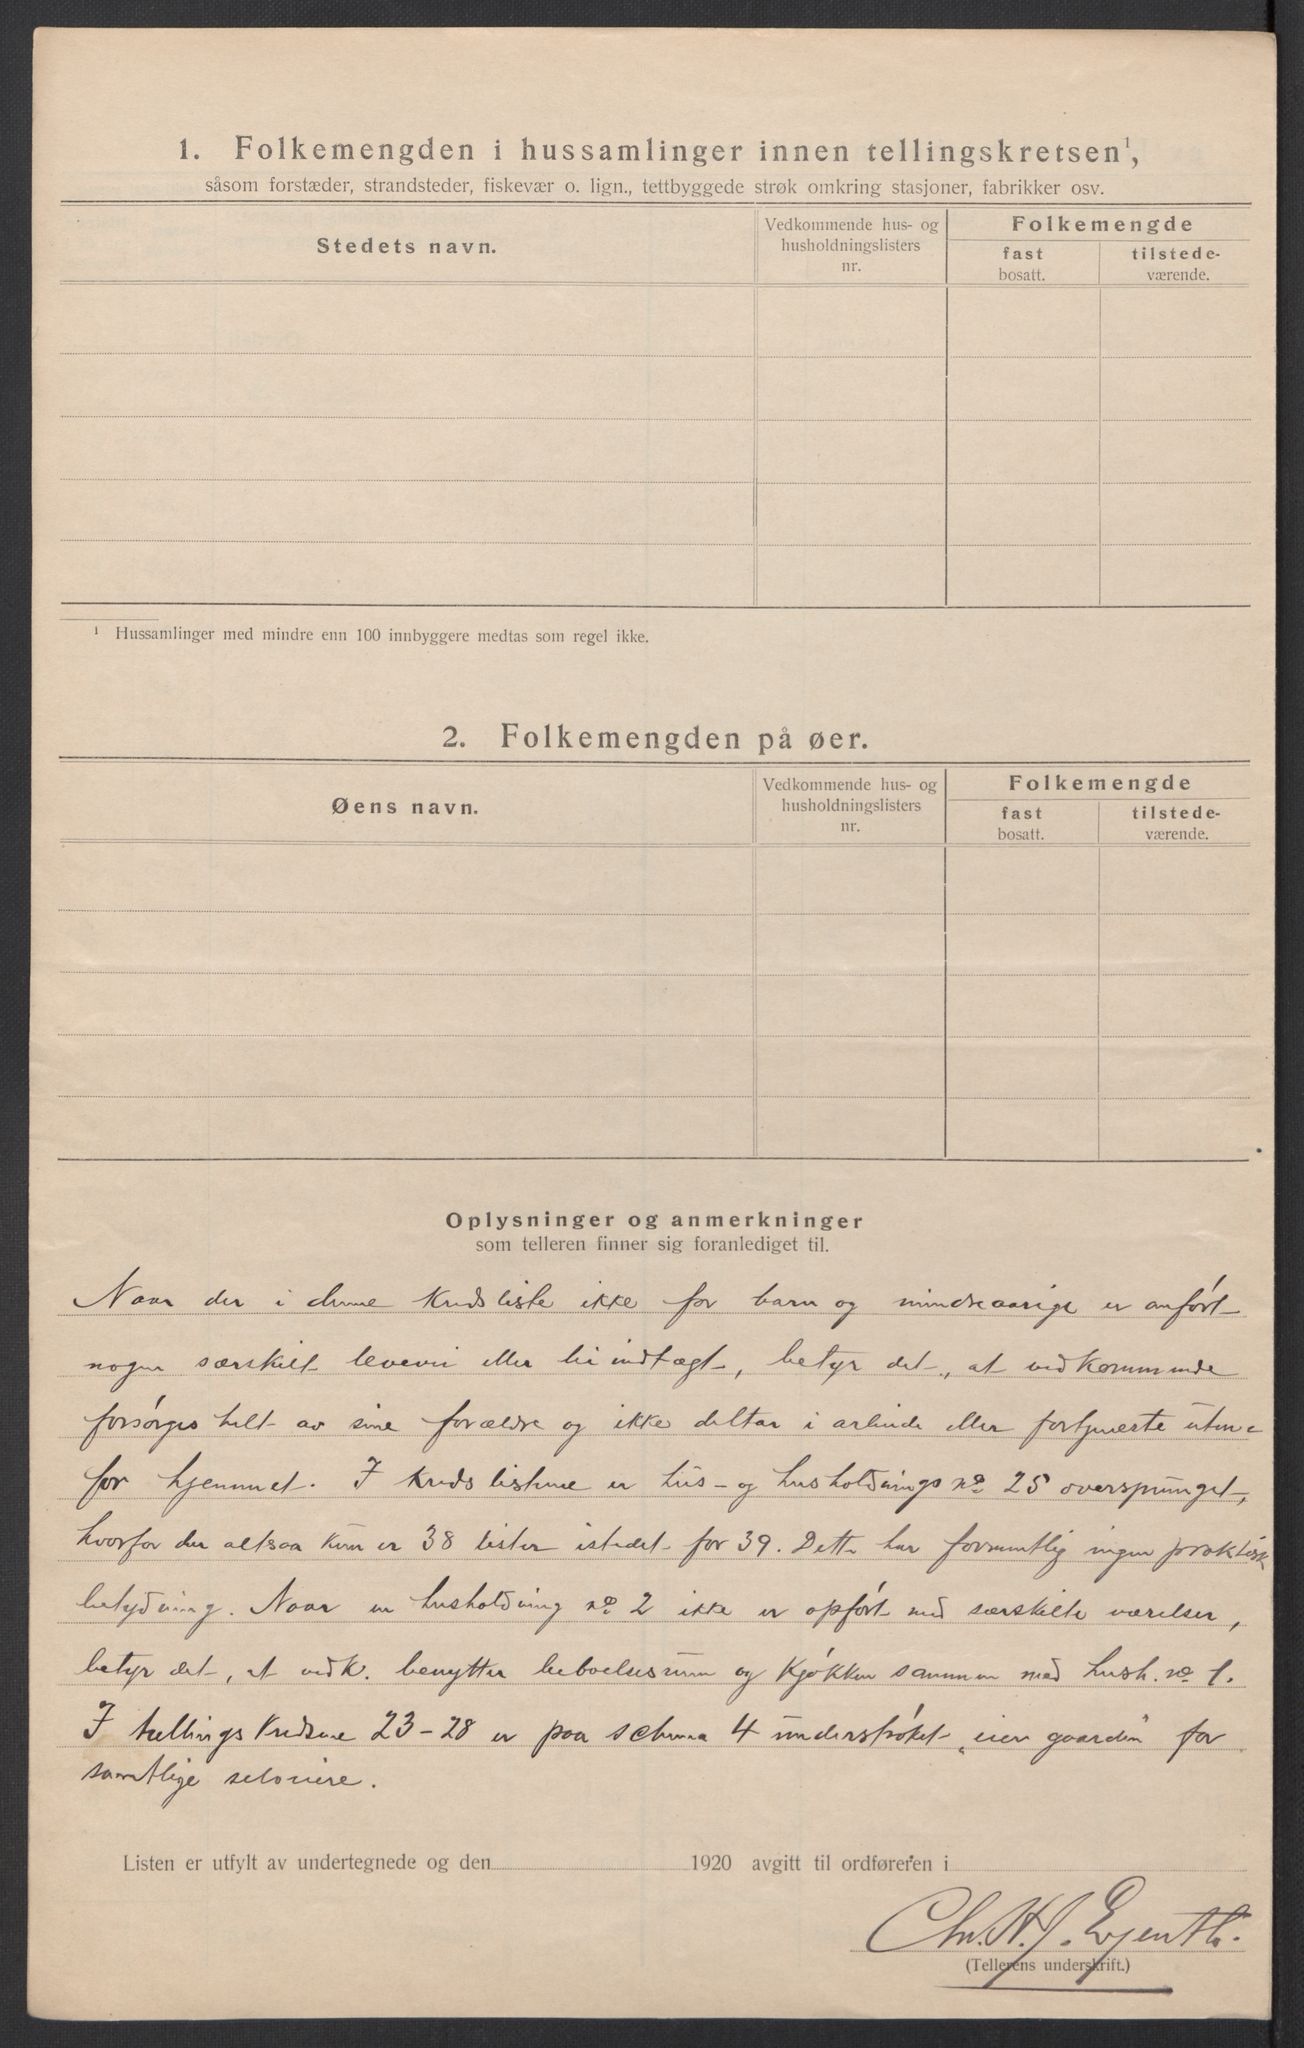 1. Folkemengden i hussamlinger innen tellingskretsen¹,
såsom forstæder, strandsteder, fiskevær o. lign., tettbyggede strøk omkring stasjoner, fabrikker osv.
Stedets navn.
Vedkommende hus- og
husholdningslisters
nr.
Folkemengde
fast
bosatt.
tilstede-
værende.
¹ Hussamlinger med mindre enn 100 innbyggere medtas som regel ikke.
2. Folkemengden på øer.
Øens navn.
Vedkommende hus- og
husholdningslisters
nr.
Folkemengde
fast
bosatt.
tilstede-
værende.
Oplysninger og anmerkninger
som telleren finner sig foranlediget til.
Naar der i denne Kredsliste ikke for barn og mindreaarige er anført
nogen særskilt levevei eller bi indtægt, betyr det, at vedkommende
forsørges helt av sine forældre og ikke deltar i arbeide eller fortjeneste uten-
for hjemmet. I Kredslistene er hus- og husholdnings no 25 oversprunget,
hvorfor der altsaa kun er 38 lister istedet for 39. Dette har forment­lig ingen praktisk
betydning. Naar en husholdning no 2 ikke er opført med særskilte værelser,
betyr det, at vedk. benytter beboelsesrum og Kjøkken sammen med hush. no 1.
I tællings Kredsene 23-28 er paa schema 4 understrøket „eier gaarden" for
samtlige seloeiere.
Listen er utfylt av undertegnede og den 1920 avgitt til ordføreren i
Chr. H. J.
(Tellerens underskrift.)